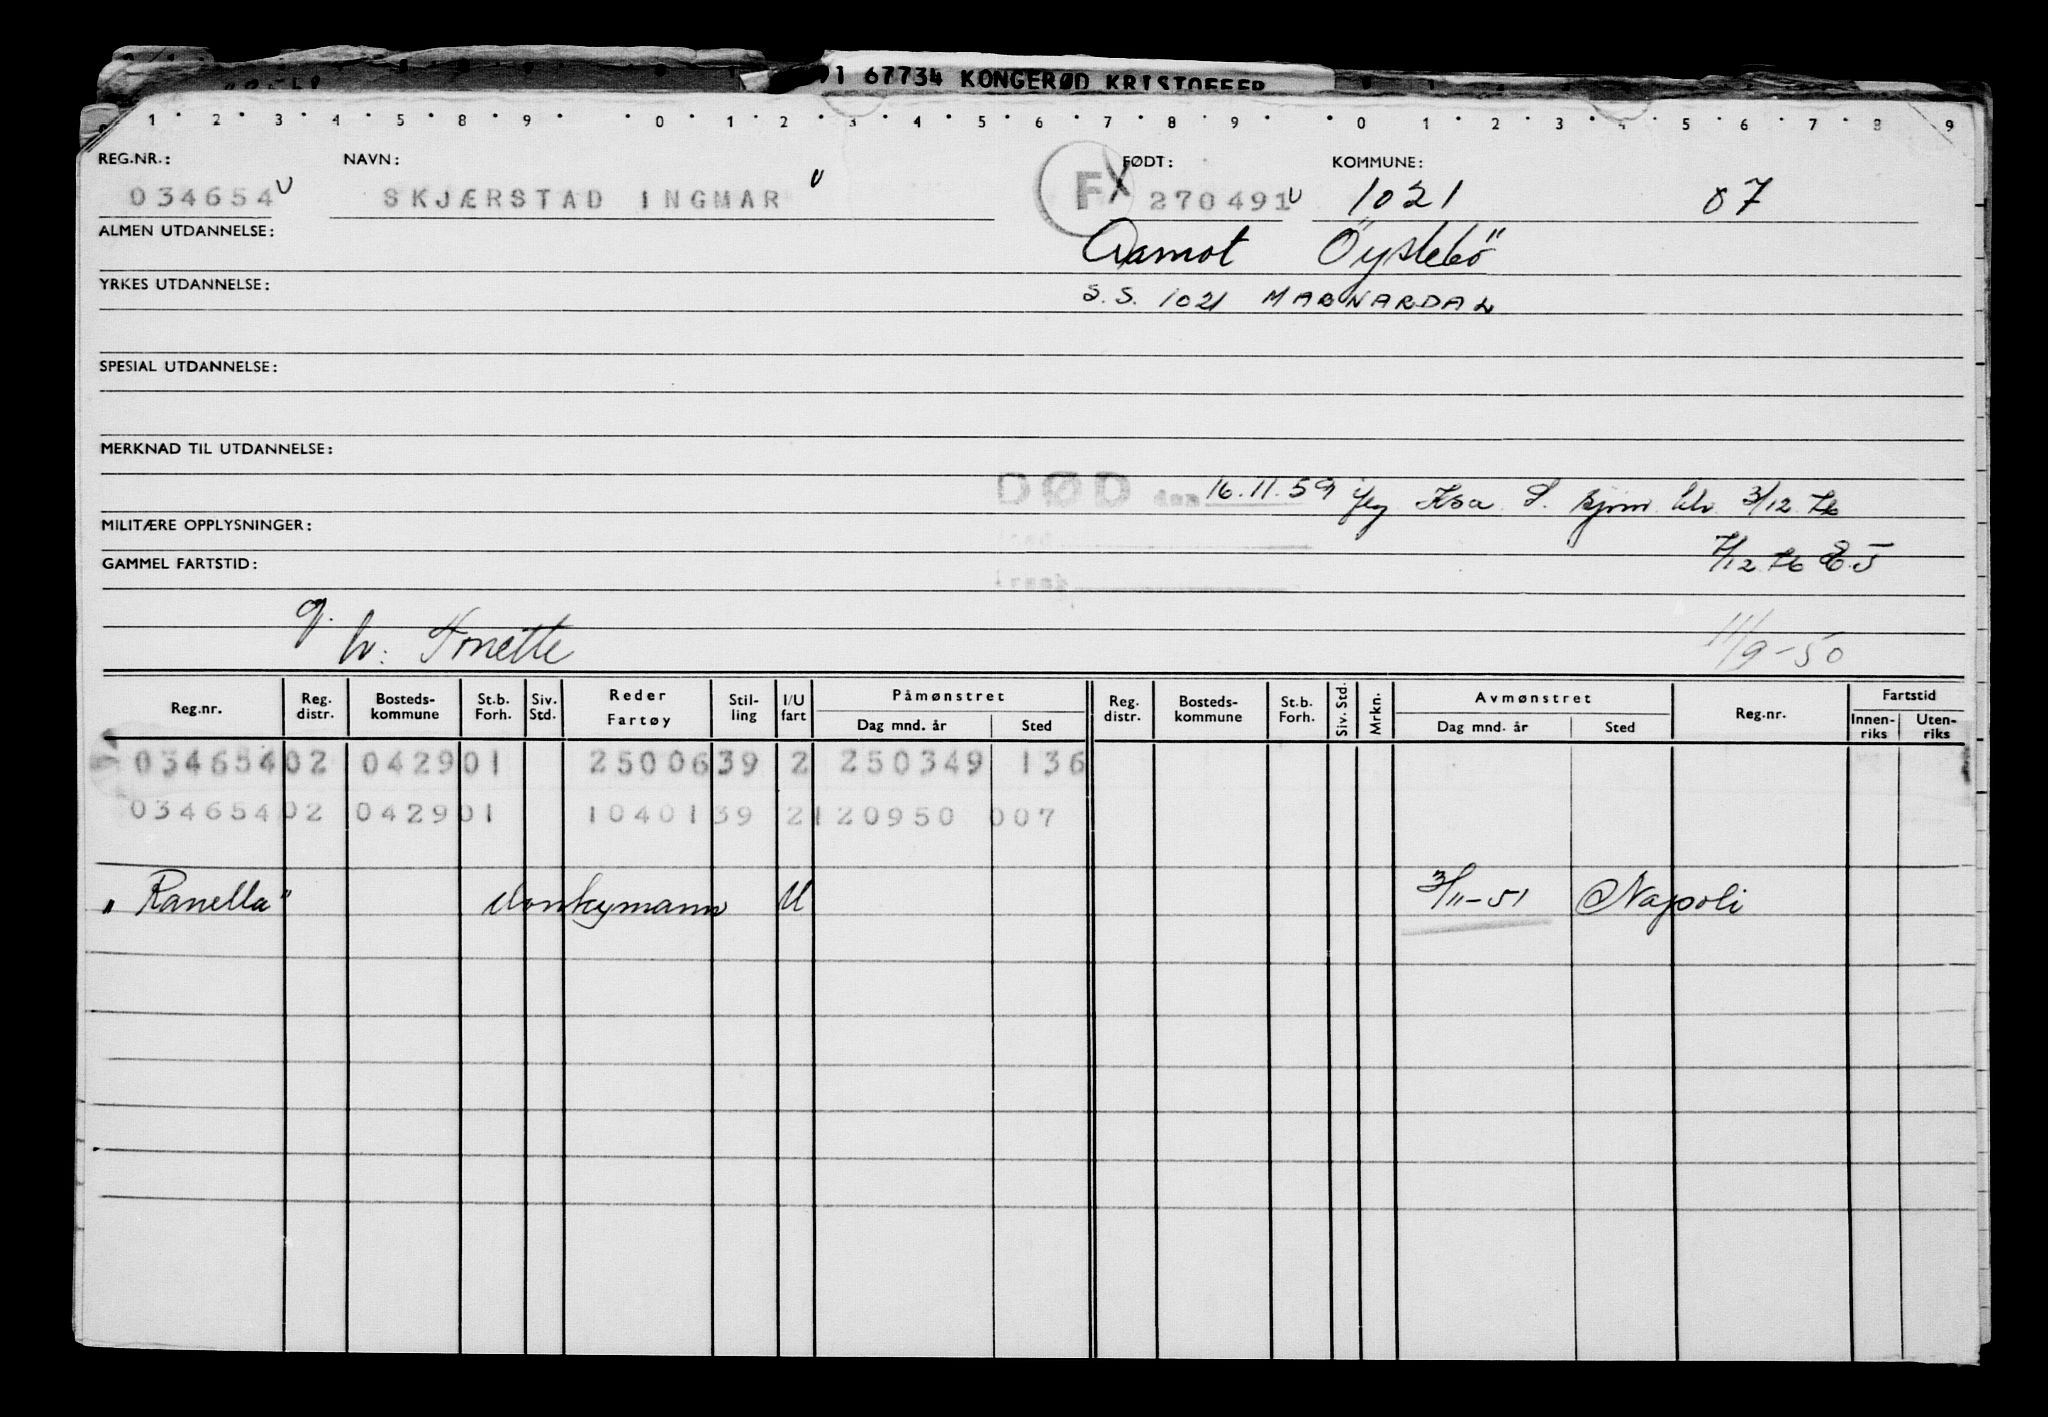 1 67734 KONGERØD KRISTOFFER
1 2 3 4 5 8 9 0 1 2 3 4 5 6 7 8 9 0 1 2 3 4 5 6 7 8 9
REG.NR.: NAVN: FØDT: KOMMUNE:
034654 SKJÆRSTAD INGMAR F 270491 1021 07
ALMEN UTDANNELSE: Aamot Öyslebö
YRKES UTDANNELSE: S.S. 1021 MARNARDAL
SPESIAL UTDANNELSE:
MERKNAD TIL UTDANNELSE:
DØD den 16.11.59 3/12
MILITÆRE OPPLYSNINGER:
7/12
GAMMEL FARTSTID:
Årsak
g. h: Tonette 11/9-50
Reg.nr. Reg. distr. Bosteds-kommune St.b. Forh. Siv. Std. Reder Fartøy Stil-ling I/U fart Påmønstret Dag mnd. år Sted Reg. distr. Bosteds-kommune St.b. Forh. Siv. Std. Mrkn. Avmønstret Dag mnd. år Sted Reg.nr. Fartstid Innen-riks Uten-riks
034654 02 0429 01 25006 39 2 250349 136
034654 02 0429 01 10401 39 2 120950 007
"Ranella" donkymann U 3/11-51 Napoli